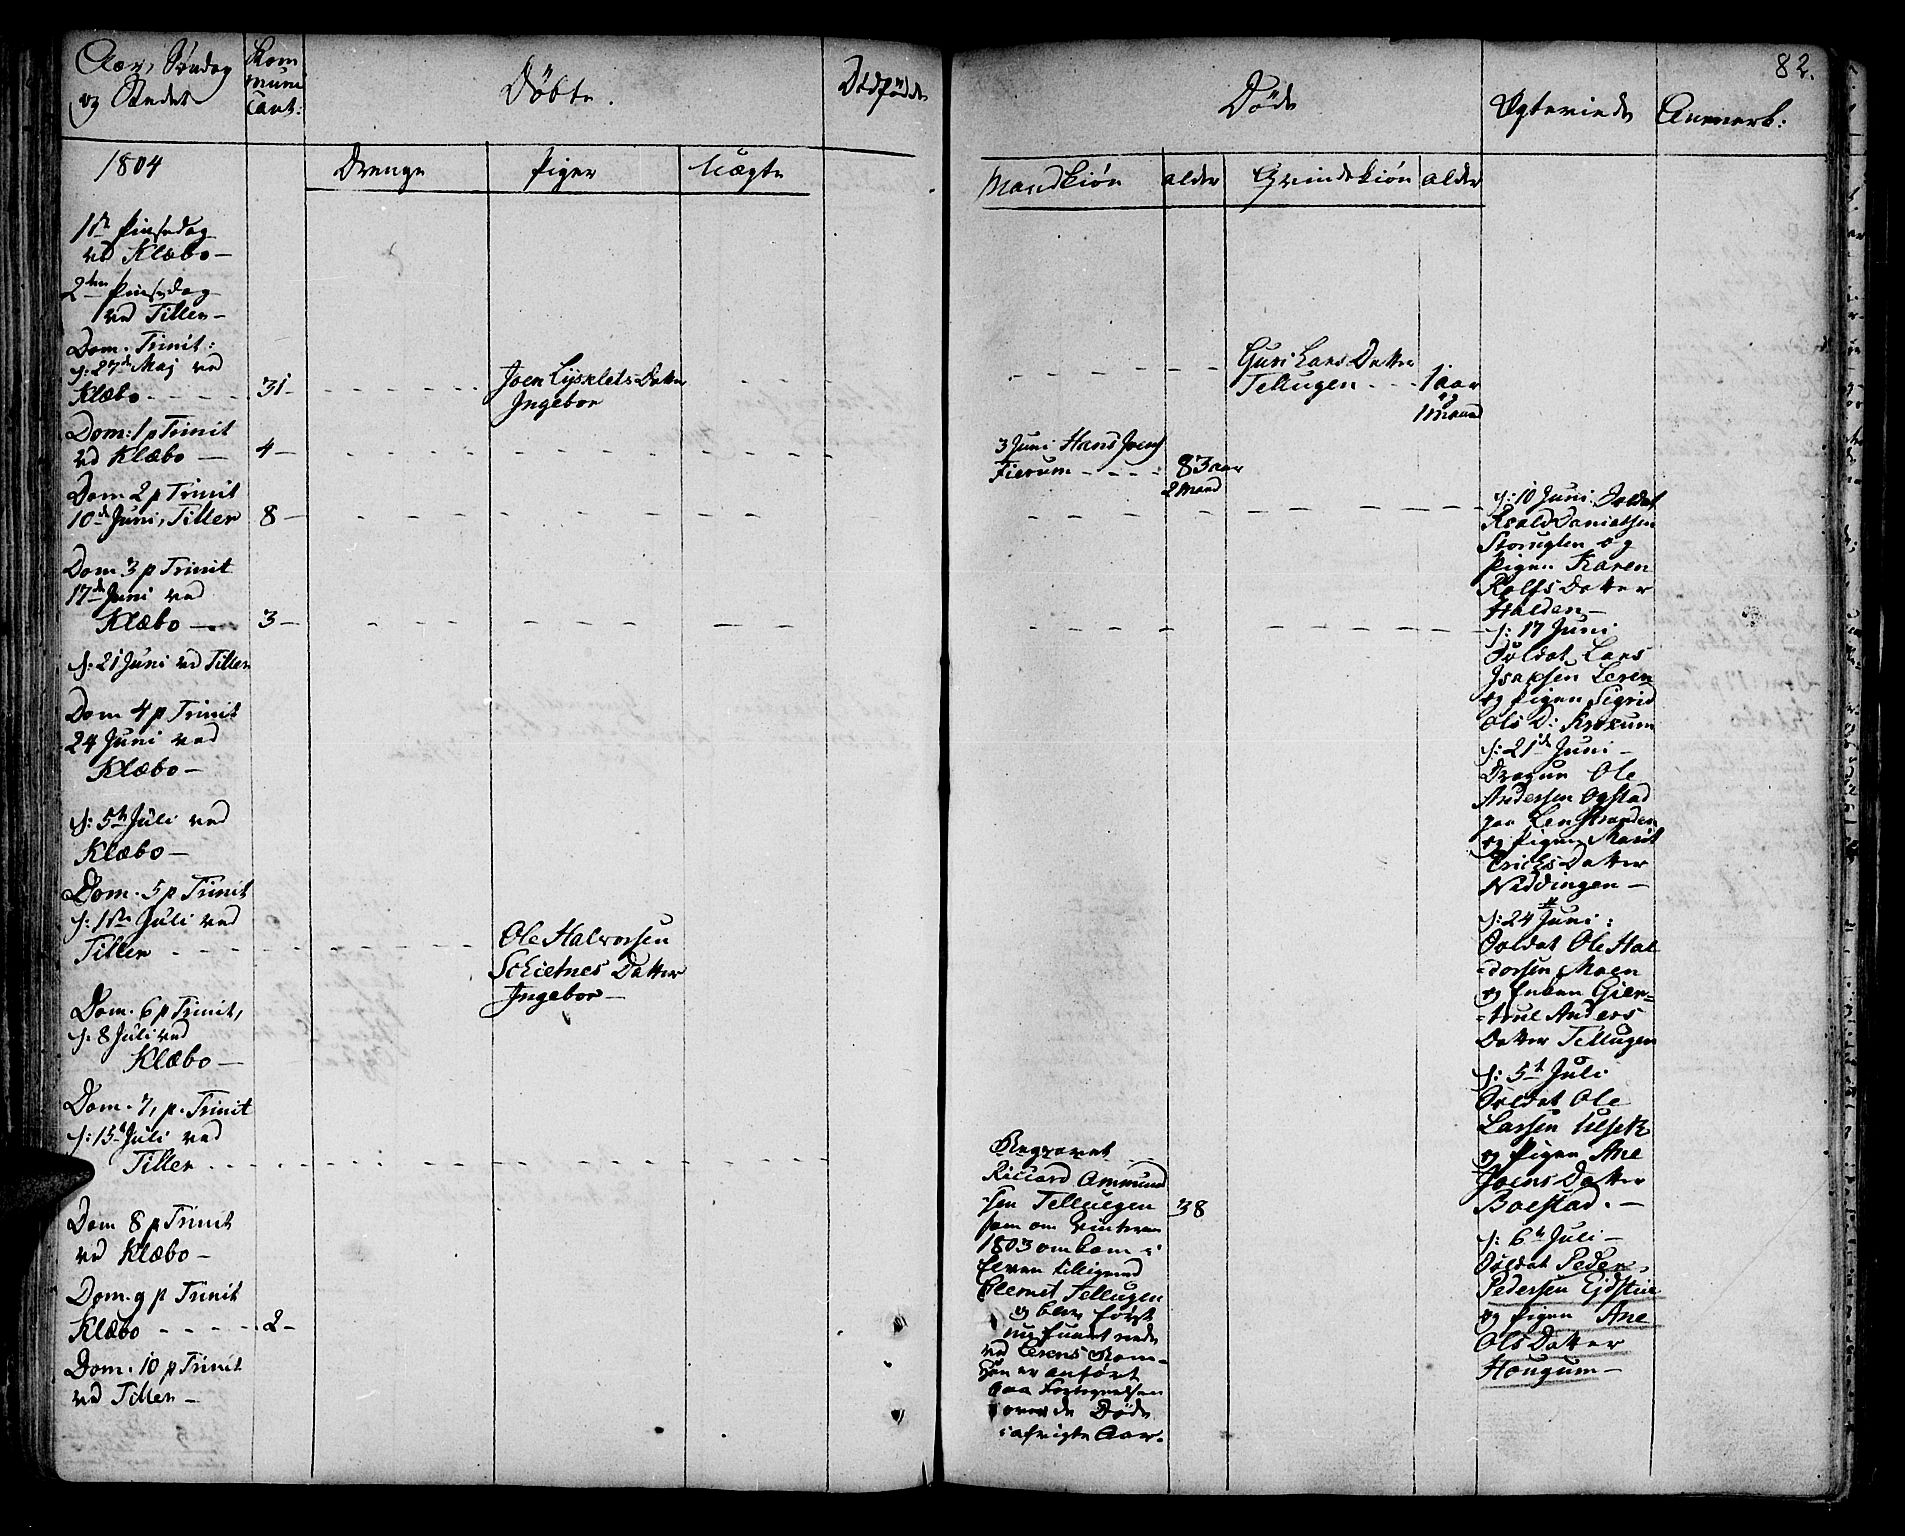 82.
Aar, Søndag
og Stedet
Kom
muni
cant:
Döbte.
Dödfödde
Døde
Ægteviede
Anmerk:
1804
Drenge
Piger
Uægte
Mandkiøn
alder
Qvindekiön
alder
1ste Pintsedag
ved Klæbo —
2den Pintsedag
ved Tiller —
Dom. Trinit:
d: 27de Maj ved
Klæbo - - - - 31 —
Dom: 1 p Trinit
ved Klæbo — 4 —
Dom 2 p Trinit
10de Juni, Tiller 8 —
Dom 3 p Trinit
17de Juni ved
Klæbo — 3 —
d: 21 Juni ved Tiller
Dom 4 p Trinit
24 Juni ved
Klæbo —
d: 5te Juli ved
Klæbo —
Dom. 5 p Trinit
d: 1ste Juli ved
Tiller
Dom. 6 p Trinit,
d: 8 Juli ved
Klæbo —
Dom. 7, p. Trinit
d: 15de Juli ved
Tiller
Dom 8 p Trinit
ved Klæbo —
Dom. 9 p Trinit
Klæbo - - - - 2 —
Dom. 10 p Trinit
ved Tiller —
Joen Datter
Ingebor
Ole Halvorsen
Schietnes Datter
Ingebor —
3 Juni Hans Joens
Fierum - - - - 83 aar
2 Maned
Begravet
Riccard Ammund
sen Tellugen 38
som om Vinteren
1803 omkom i
Elven tilligemed
Tellugen
og blev først
nu fundet nede
ved Lerens
han er anført
paa Fortegnelsen
over de Døde
i afvigte Aar.
Guri Lars Datter
Tellugen - - - 1 aar
og
1 Maaned
d: 10 Juni. Soldat
Roald Danielsen
Storuglen og
Pigen Karen
Rolfs Datter
Halden —
d: 17 Juni
Soldat Lars
Isaksen Leren
og Pigen Sigrid
Ols D:
d: 21de Juni —
Dragun Ole
Andersen Ogstad
paa Lenstranden
og Pigen Marit
Erichs Datter
Niddingen —
d: 24 Juni:
Soldat Ole Hal
-dorsen Moen
og Enken Gier-
-trul Anders
Datter Tellugen
d: 5te Juli
Soldat Ole
Larsen Ulsek
og Pigen Ane
Joens Datter
Bostad. —
d: 6te Juli —
Soldat Peder
Pedersen Ejdstue
og Pigen Ane
Ols Datter
Hougum —